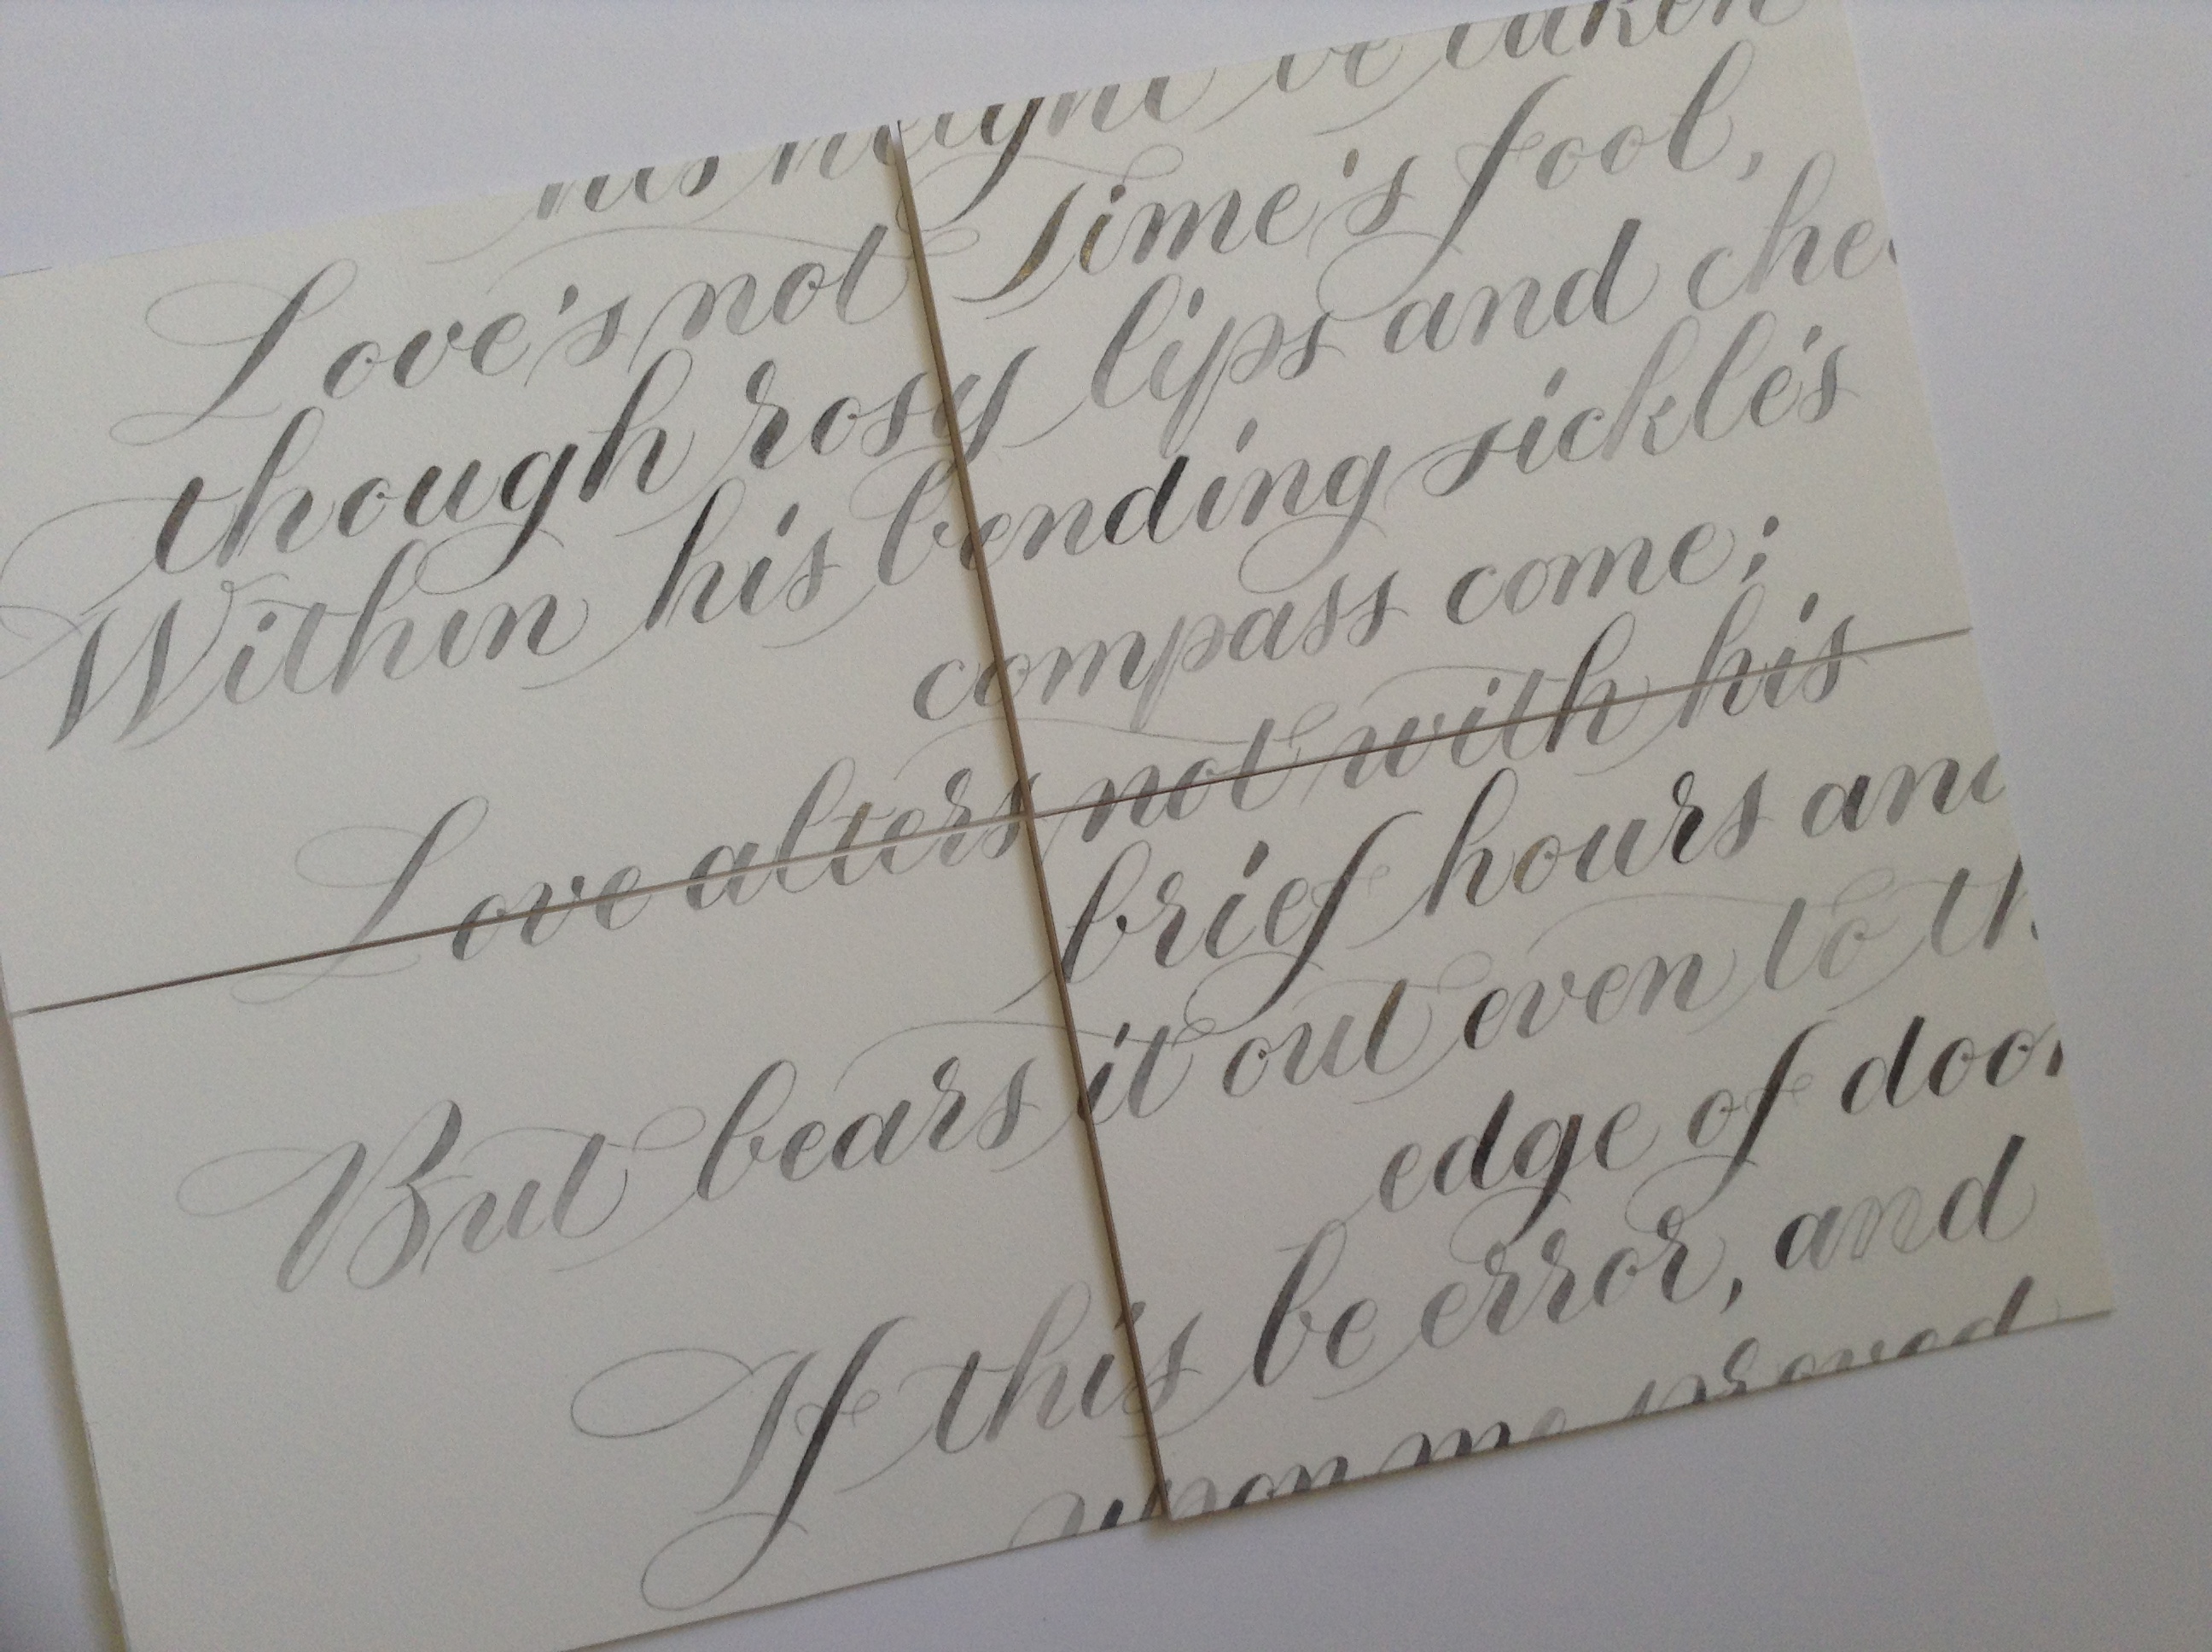 his height be taken
Love's not Time's fool,
though rosy lips and che
Within his bending sickle's
compass come;
Love alters not with his
brief hours and
But bears it out even to th
edge of doo
If this be error, and
upon me proved